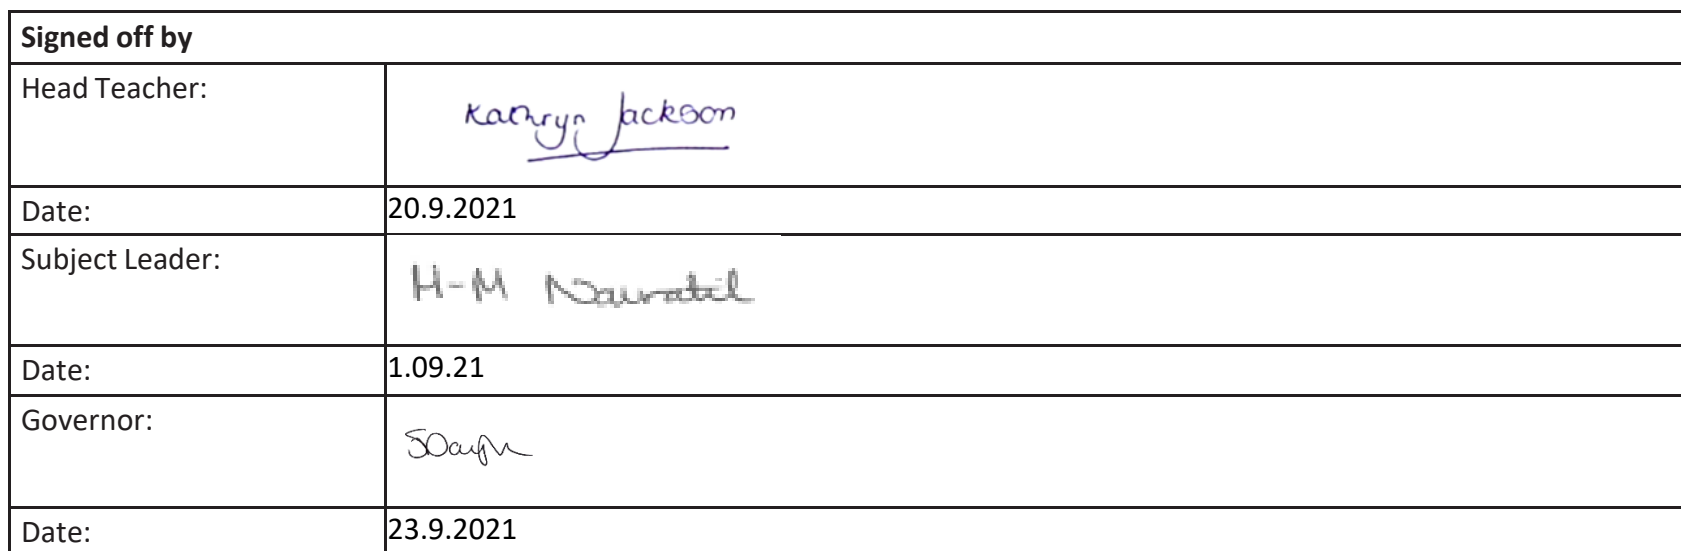 Signed off by
Head Teacher: Kathryn Jackson
Date: 20.9.2021
Subject Leader: H-M Navratil
Date: 1.09.21
Governor:
Date: 23.9.2021